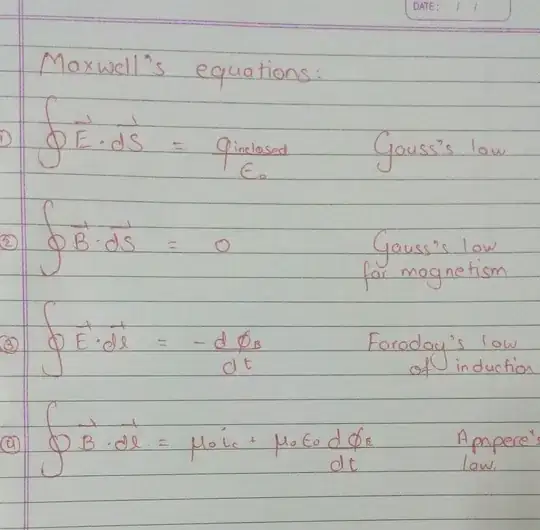 DATE: / /
Maxwell's equations:
① ∮ E⃗ · dS⃗ = qinclosed/ε₀ Gauss's law
② ∮ B⃗ · dS⃗ = 0 Gauss's law
for magnetism
③ ∮ E⃗ · dℓ⃗ = - dϕ_B/dt Faraday's law
of induction
④ ∮ B⃗ · dℓ⃗ = μ₀i_c + μ₀ε₀ dϕ_E/dt Ampere's
law